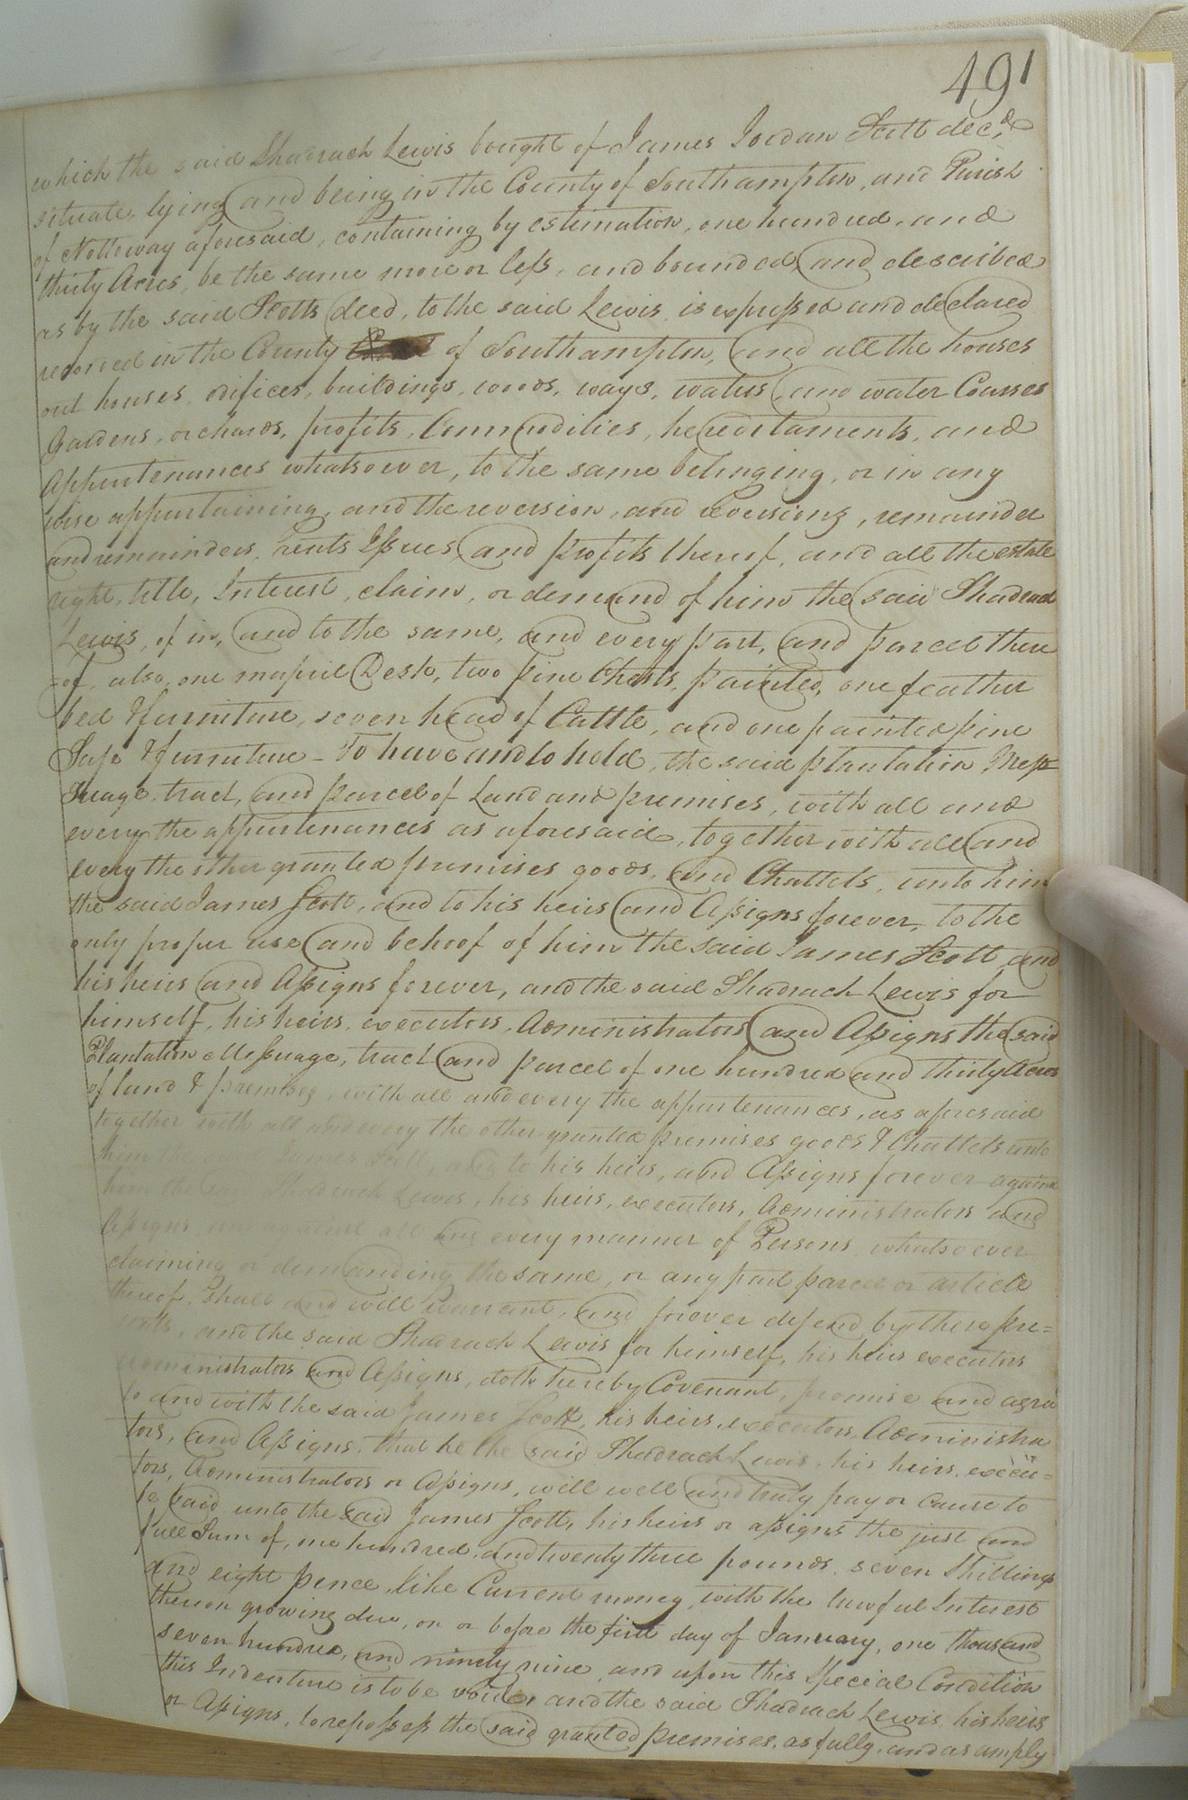 491
which the said Shadrach Lewis bought of James Jordan Scott dec.d
situate, lying and being in the County of Southampton, and Parish
of Nottoway aforesaid, containing by estimation, one hundred, and
thirty Acres, be the same more or less, and bounded, and described
as by the said Scotts deed, to the said Lewis is expressed and declared
recorded in the County of Southampton, and all the houses
out houses, edifices, buildings, woods, ways, waters, and water Courses
Gardens, orchards, profits, Commodities, hereditaments, and
Appurtenances whatsoever, to the same belonging, or in any
wise appurtaining, and the reversion, and reversions, remainder
and remainders, rents Issues, and profits thereof, and all the estate
right, title, Interest, claim, or demand of him the said Shadrach
Lewis, of in, and to the same, and every part, and parcel there
=of, also, one Desk, two pine Chests, painted, one feather
bed & furniture, seven head of Cattle, and one painted pine
Safe & furniture - To have and to hold, the said plantation Mess=
Suage, tract, and parcel of Land and premises, with all and
every the appurtenances as aforesaid, together with all and
every the other granted premises goods, and Chattels, unto him
the said James Scott, and to his heirs and Assigns forever, to the
only proper use and behoof of him the said James Scott and
his heirs and Assigns forever, and the said Shadrach Lewis for
himself, his heirs, executors, Administrators and Assigns the said
Plantation Messuage, tract and parcel of one hundred and thirty Acres
of land & premises, with all and every the appurtenances, as aforesaid
together with all and every the other granted premises goods & Chattels unto
him James Scott, and to his heirs, and Assigns forever against
him the said Shadrach Lewis, his heirs, executors, Administrators and
Assigns, and against all and every manner of Persons whatsoever
claiming or demanding the same, or any part parcel or article
thereof, Shall and will warrant, and forever defend by these pre=
sents, and the said Shadrach Lewis for himself, his heirs executors
administrators and Assigns, doth hereby Covenant, promise and agree
to and with the said James Scott, his heirs, executors, Administra
tors, and Assigns, that he the said Shadrach Lewis, his heirs, execu=
tors, Administrators or Assigns, will well and truly pay or cause to
be paid unto the said James Scott, his heirs or assigns the just and
full Sum of, one hundred, and twenty three pounds, seven Shillings
and eight pence, like Current money, with the lawful Interest
thereon growing due, on or before the first day of January, one thousand
seven hundred, and ninety nine, and upon this Special Condition
this Indenture is to be void, and the said Shadrach Lewis, his heirs
or Assigns, to repossess the said granted premises, as fully, and as amply